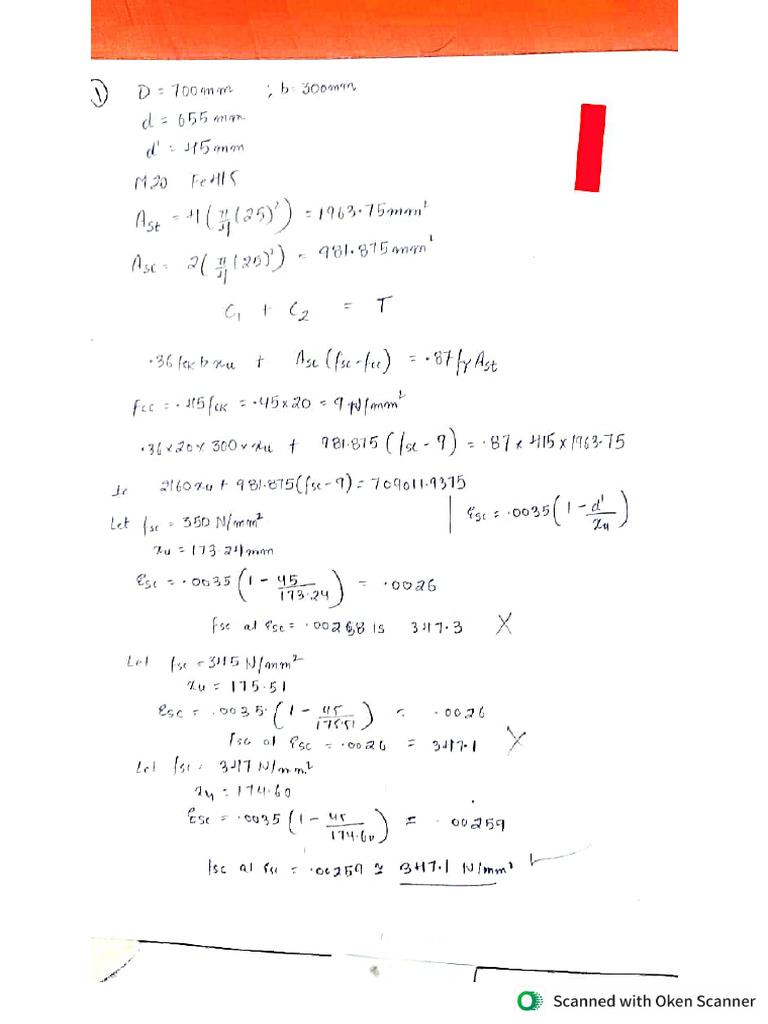 ① D = 700mm ; b = 300mm
d = 655 mm
d' = 45mm
M20 Fe415
Ast = 4(π/4(25)²) = 1963.75mm²
Asc = 2(π/4(25)²) = 981.875mm²
C₁ + C₂ = T
.36fck b xu + Asc(fsc-fcc) = .87fyAst
Fcc = .45fck = .45×20 = 9 N/mm²
.36×20×300×xu + 981.875(fsc-9) = .87×415×1963.75
2160xu + 981.875(fsc-9) = 709011.9375
Let fsc = 350 N/mm² | εsc = .0035(1 - d'/xu)
xu = 173.24mm
εsc = .0035(1 - 45/173.24) = .0026
fsc at εsc = .00268 is 347.3 X
Let fsc = 345 N/mm²
xu = 175.51
εsc = .0035(1 - 45/175.51) = .0026
fsc at εsc = .0026 = 347.1 X
Let fsc = 347 N/mm²
xu = 174.60
εsc = .0035(1 - 45/174.60) = .00259
fsc at εsc = .00259 ≃ 347.1 N/mm² ✓
Scanned with Oken Scanner